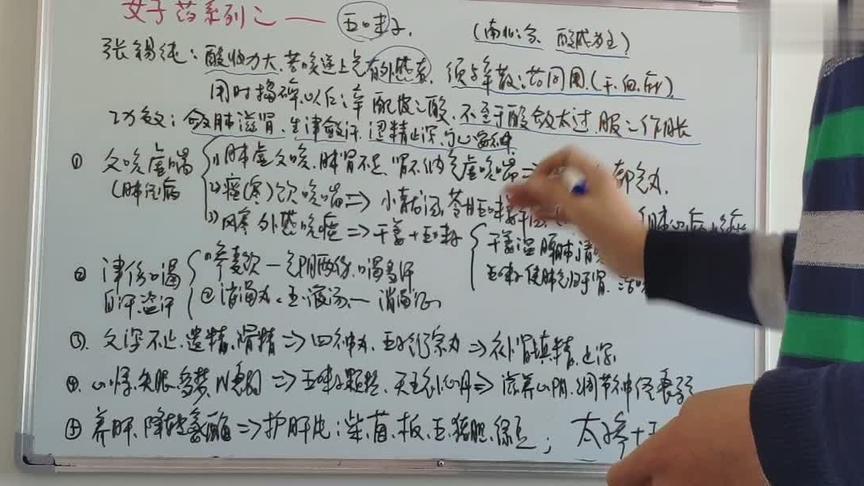 女子药系列之一 五味子.
(南北之分、酸咸为主)
张锡纯：酸收力大、若咳逆上气有外感者，须与辛散之药同用，(干、细、麻)
用时捣碎，以仁之辛配皮之酸，不至于酸敛太过，服之作胀
功效：敛肺滋肾、生津敛汗、涩精止泻、宁心安神
① 久咳虚喘 (1)肺虚久咳、肺肾不足、肾不纳气虚咳喘⇒ 都气丸.
(肺经病 (2)痰(寒)饮咳喘⇒小青龙汤、苓甘五味姜辛
(3)风寒外感咳痰⇒干姜+五味子 干姜温脾肺
五味子使肺气归于肾
② 津伤口渴 ①生脉饮—气阴两伤、口渴多汗
自汗盗汗 ②消渴丸、玉液汤—消渴
③、久泻不止、遗精、滑精⇒四神丸、五子衍宗丸⇒补肾填精、止泻
④、心悸、失眠、多梦、N衰弱⇒五味子颗粒、天王补心丹⇒滋养心阴、调节神经衰弱
⑤ 养肝、降转氨酶⇒护肝片：柴、茵、板、五、猪胆、绿豆； 太子参+五